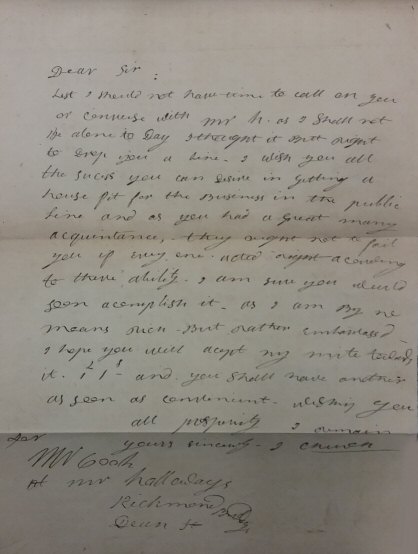 Dear Sir
Lest I should not have time to call on you
or converse with Mr H. as I shall not
be alone to day I thought it But right
to drop you a line - I wish you all
the sucess you can desire in getting a
house fit for the Business in the public
line and as you had a great many
acquintance, they ought not to fail
you if every one acted right acording
to there ability. I am sure you would
soon acomplish it - as I am By no
means rich - But rather Embarased
I hope you will acept my mite towards
it. and you shall have another
as soon as convenient. wishing you
all prosperity I remain
yours sincerely - I Church
for
Mr Cook
At Mr Halladays
Richmond
Dean St